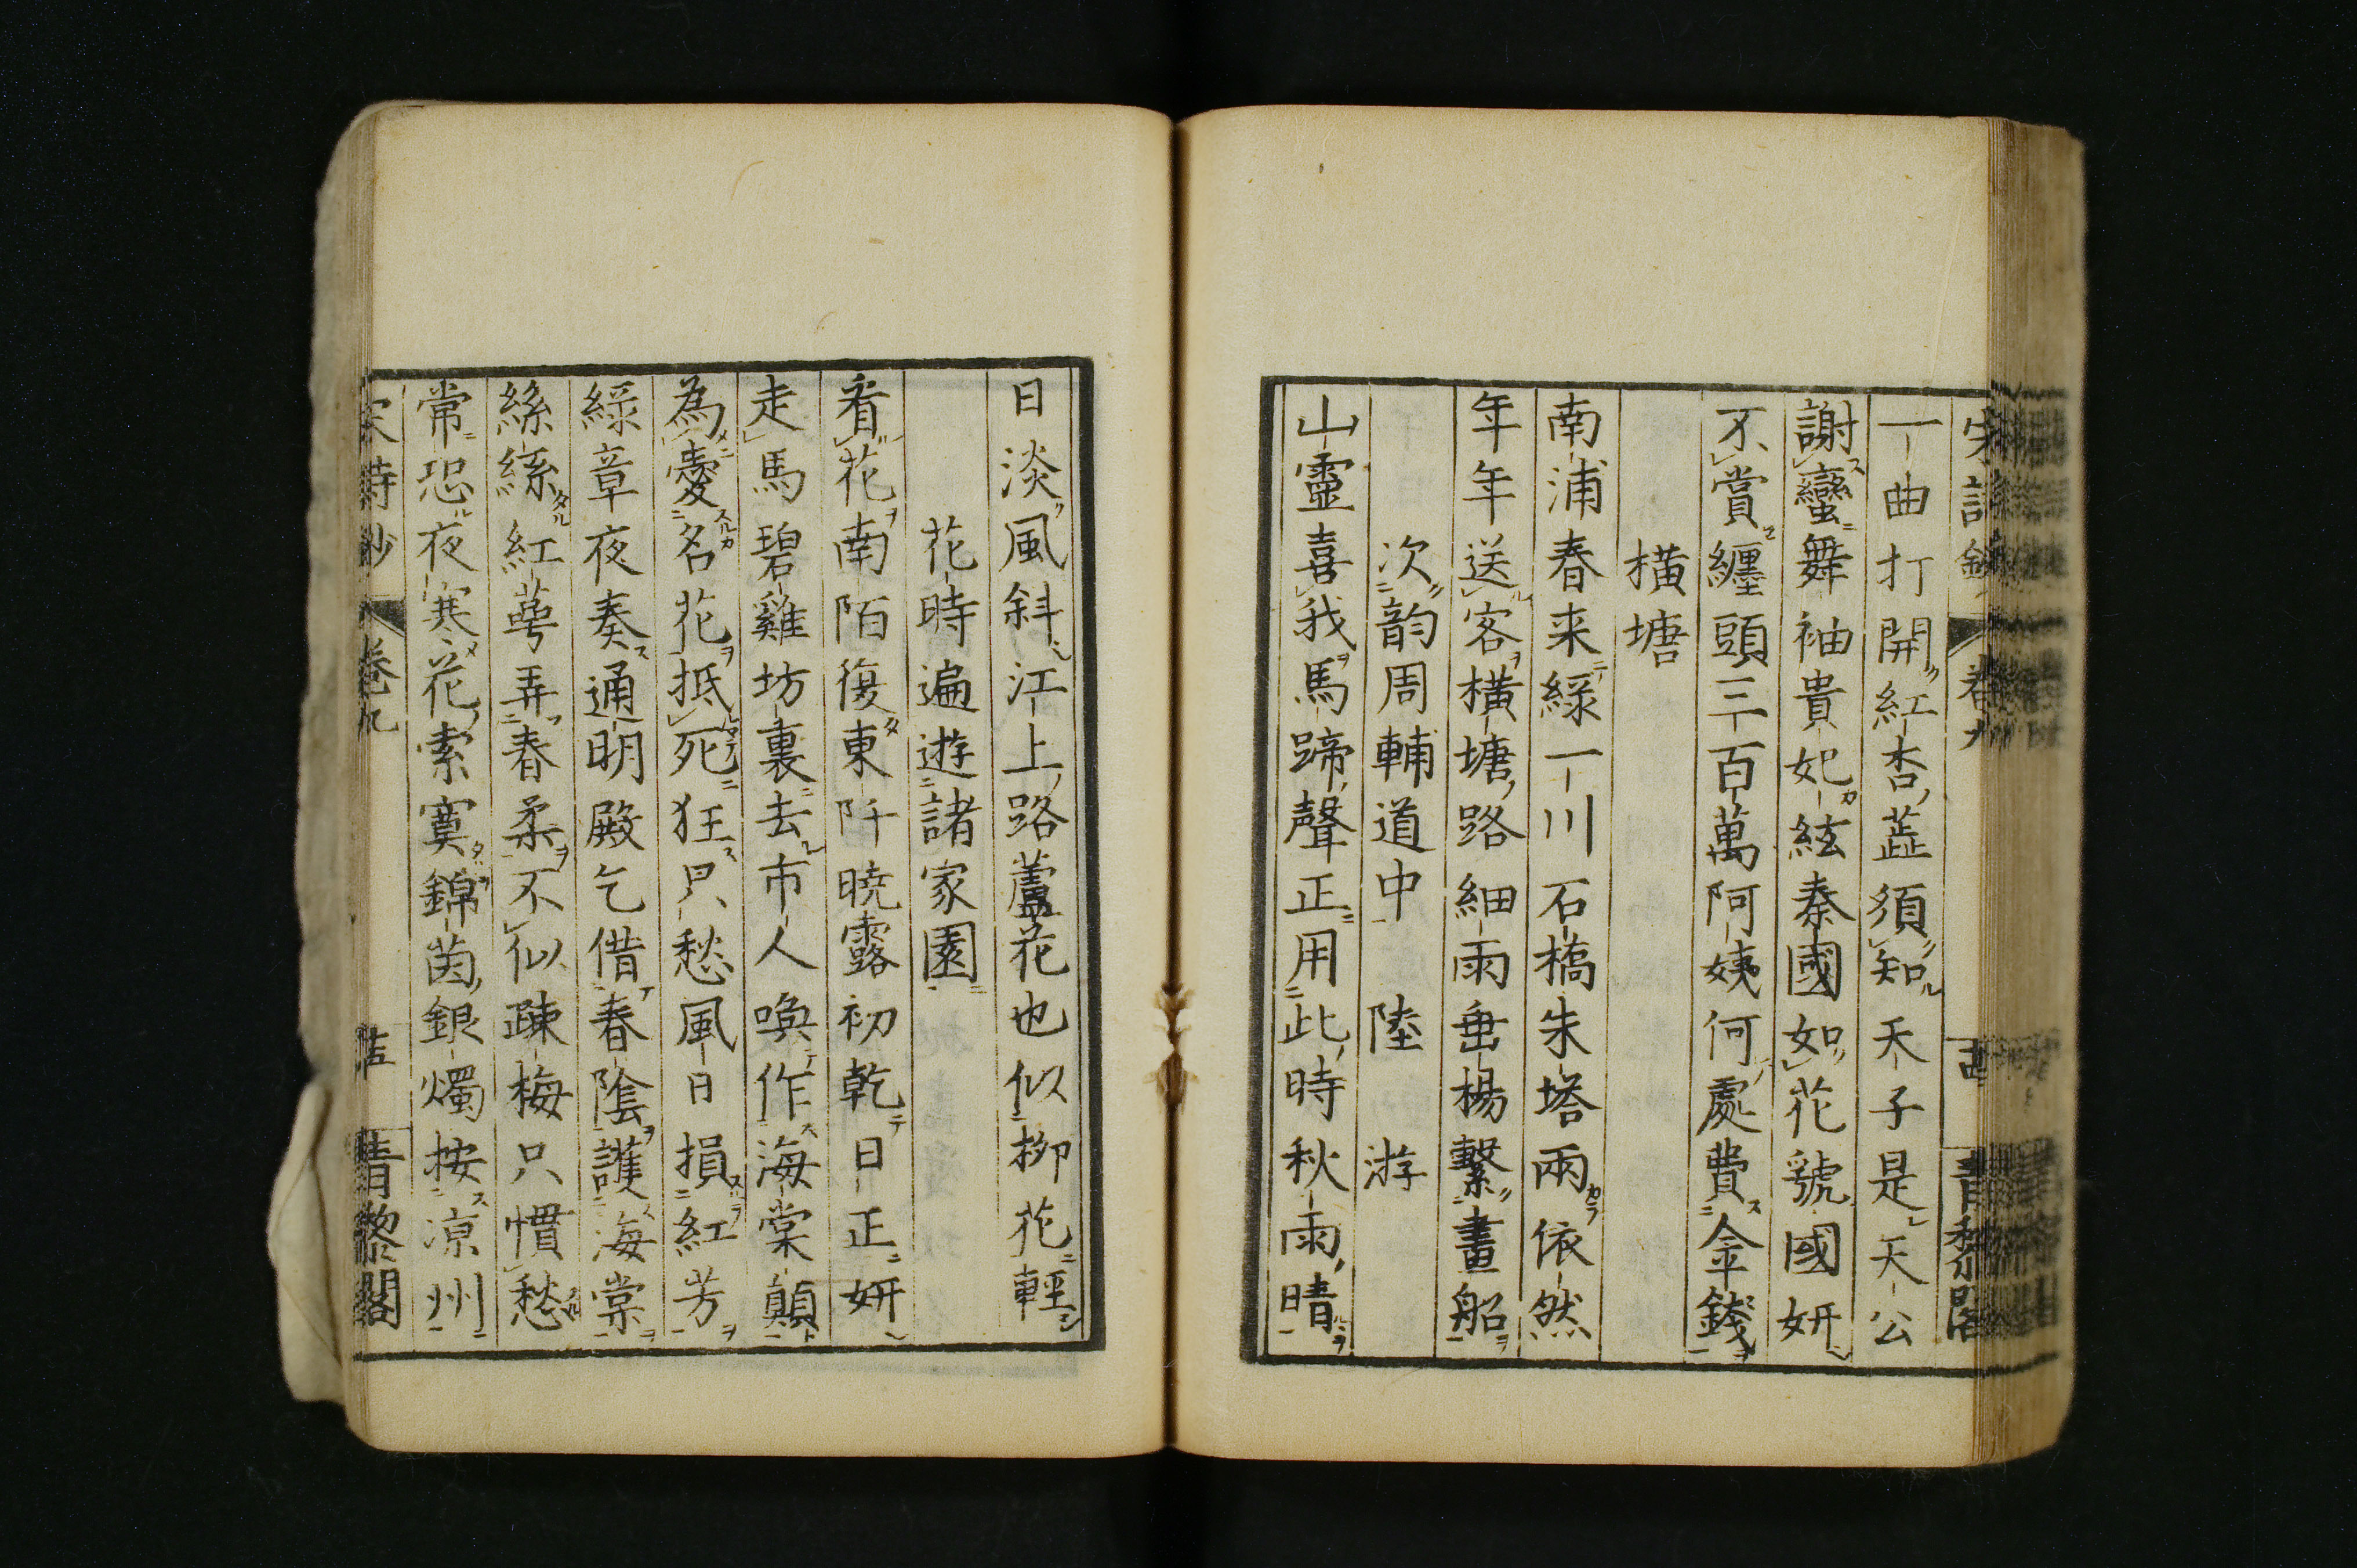 宋詩鈔 卷九 青黎閣
一曲打開紅杏蕋須知天子是天公
謝蠻舞袖貴妃絃秦國如花虢國妍
不賞纏頭三百萬阿姨何處費金錢
橫塘
南浦春来綠一川石橋朱塔兩依然
年年送客橫塘路細雨垂楊繫畫船
次韵周輔道中 陸游
山靈喜我馬蹄聲正用此時秋雨晴
日淡風斜江上路蘆花也似柳花輕
花時遍遊諸家園
看花南陌復東阡曉露初乾日正妍
走馬碧雞坊裏去市人喚作海棠顛
為愛名花抵死狂只愁風日損紅芳
綠章夜奏通明殿乞借春陰護海棠
絲絲紅萼弄春柔不似疎梅只慣愁
常恐夜寒花索寞錦茵銀燭按凉州
宋詩鈔 卷九 青黎閣